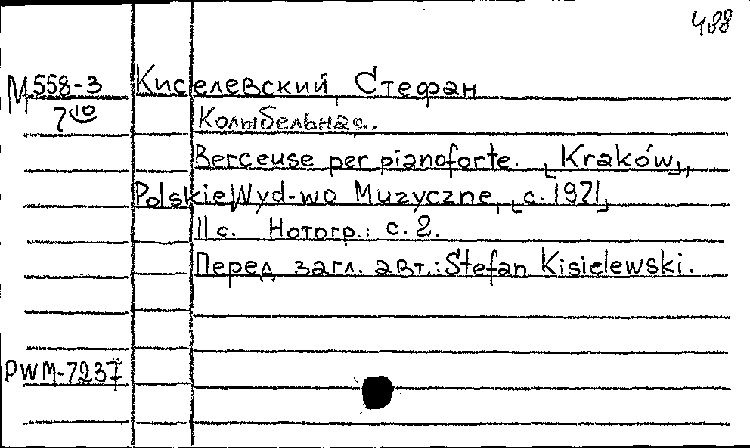 488
М 558-3
7 10
Киселевский, Стефан
Колыбельная.
Berceuse per pianoforte. [Kraków],
Polskie Wyd-wo Muzyczne, [c. 1971]
11 с. Нотогр.: с. 2.
Перед загл. авт.: Stefan Kisielewski.
PWM-7237